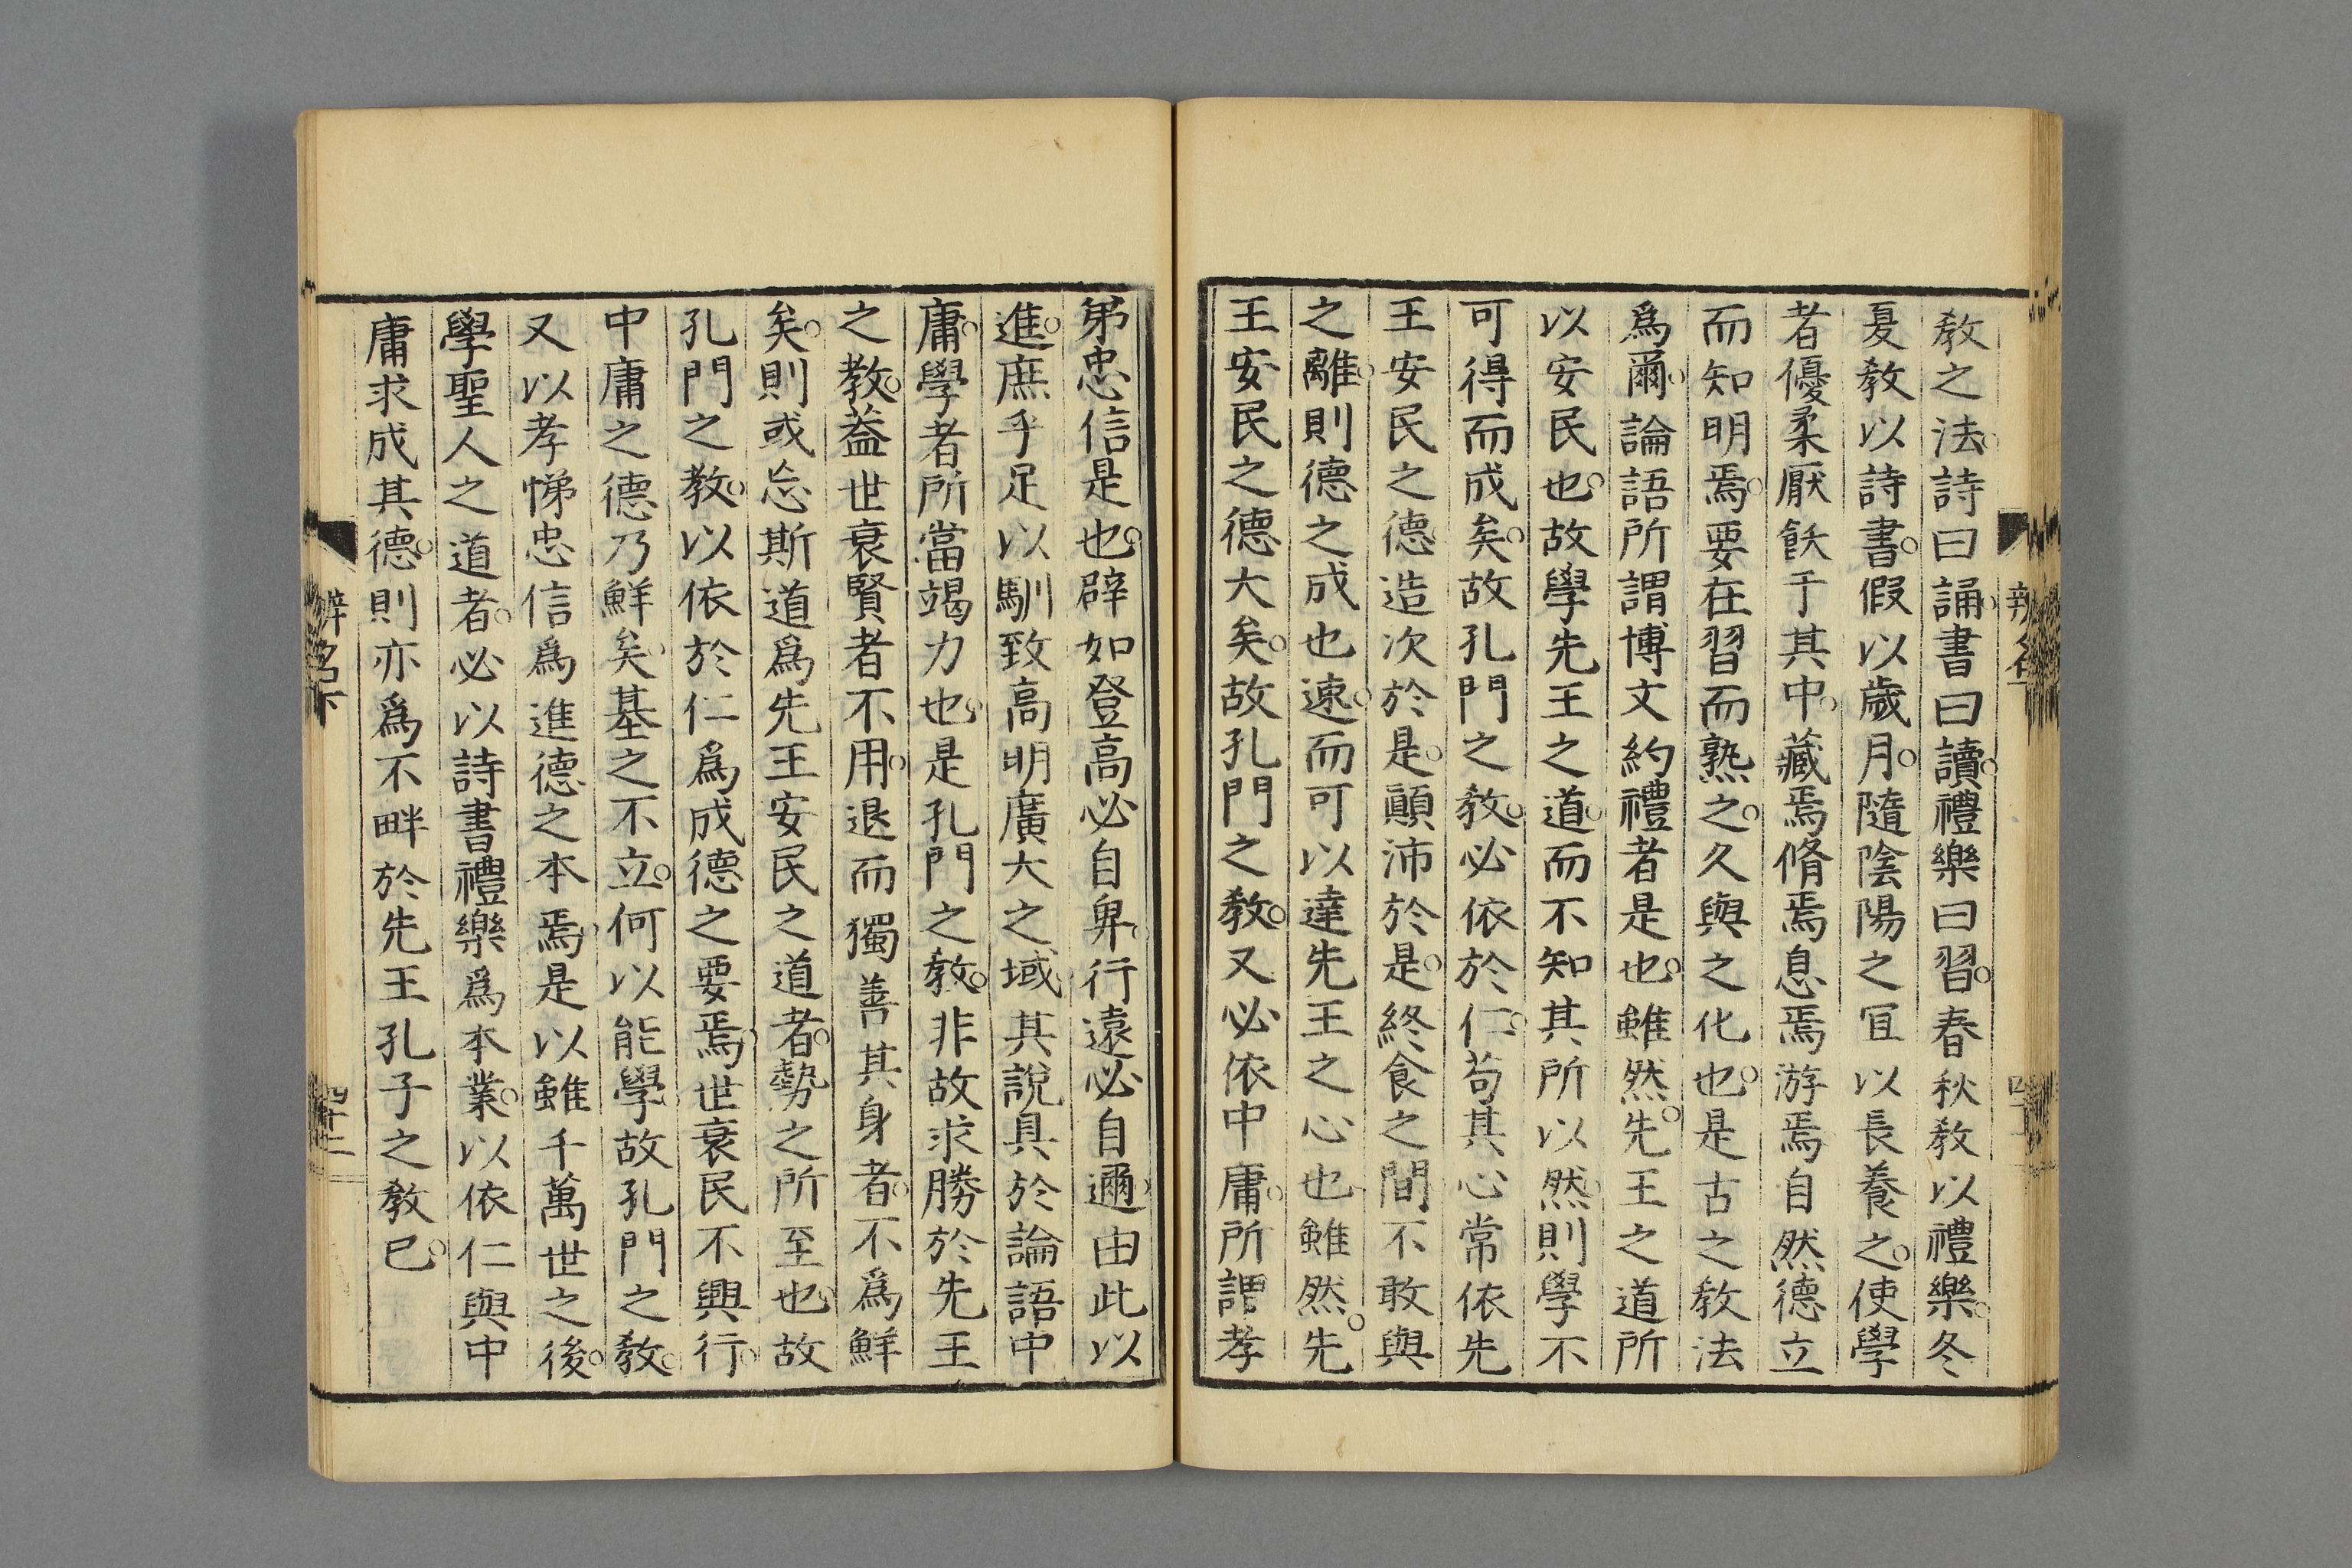 教之法。詩曰誦。書曰讀。禮樂曰習。春秋教以禮樂。冬
夏教以詩書。假以歲月。隨陰陽之冝以長養之。使學
者優柔厭飫于其中。藏焉脩焉息焉游焉自然德立
而知明焉。要在習而熟之。久與之化也。是古之教法
爲爾。論語所謂博文約禮者是也。雖然。先王之道所
以安民也。故學先王之道。而不知其所以然。則學不
可得而成矣。故孔門之教。必依於仁。苟其心常依先
王安民之德。造次於是。顚沛於是。終食之間不敢與
之離。則德之成也速。而可以達先王之心也。雖然。先
王安民之德大矣。故孔門之教。又必依中庸。所謂孝
弟忠信是也。辟如登高必自卑。行遠必自邇。由此以
進。庶乎足以馴致高明廣大之域。其說具於論語中
庸。學者所當竭力也。是孔門之教。非故求勝於先王
之教。葢世衰賢者不用。退而獨善其身者。不爲鮮
矣。則或忘斯道爲先王安民之道者。勢之所至也。故
孔門之教。以依於仁爲成德之要焉。世衰民不興行。
中庸之德乃鮮矣。基之不立。何以能學。故孔門之教。
又以孝悌忠信爲進德之本焉。是以雖千萬世之後。
學聖人之道者。必以詩書禮樂爲本業。以依仁與中
庸求成其德。則亦爲不畔於先王孔子之教已。
辨名下
四十二